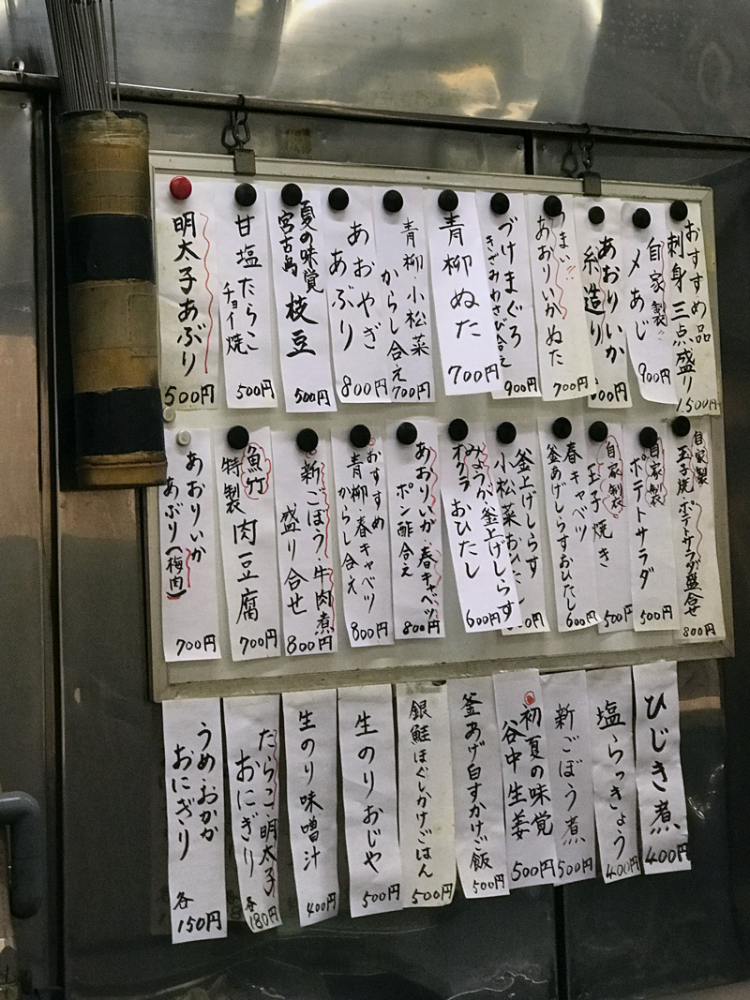 おすすめ品
刺身三点盛り
1,500円
自家製
〆あじ
900円
あおりいか
糸造り
00円
うまい!!
あおりいかぬた
700円
づけまぐろ
きざみわさび合え
900円
青柳ぬた
700円
青柳・小松菜
からし合え
700円
あおやぎ
あぶり
800円
夏の味覚
宮古島
枝豆
500円
甘塩たらこ
チョイ焼
500円
明太子あぶり
500円
自家製
玉子焼ポテトサラダ盛合せ
800円
自家製
ポテトサラダ
500円
自家製
玉子焼き
500円
春キャベツ
釜あげしらすおひたし
600円
釜上げしらす
小松菜おひたし
00円
みょうが、釜上げしらす
オクラおひたし
600円
あおりいか・春キャベツ
ポン酢合え
800円
おすすめ
青柳・春キャベツ
からし合え
800円
新ごぼう・牛肉煮
盛り合せ
800円
魚竹
特製肉豆腐
700円
あおりいか
あぶり(梅肉)
700円
ひじき煮
400円
塩らっきょう
400円
新ごぼう煮
500円
初夏の味覚
谷中生姜
500円
釜あげ白すかけご飯
500円
銀鮭ほぐしかけごはん
500円
生のりおじや
500円
生のり味噌汁
400円
たらこ明太子
おにぎり
各180円
うめおかか
おにぎり
各150円